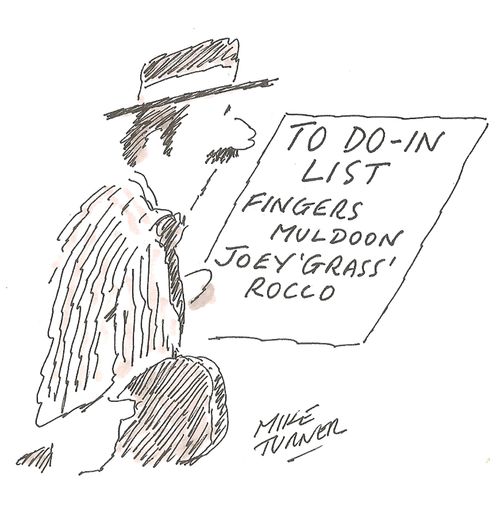 TO DO-IN
LIST
FINGERS
MULDOON
JOEY 'GRASS'
ROCCO
MIKE
TURNER